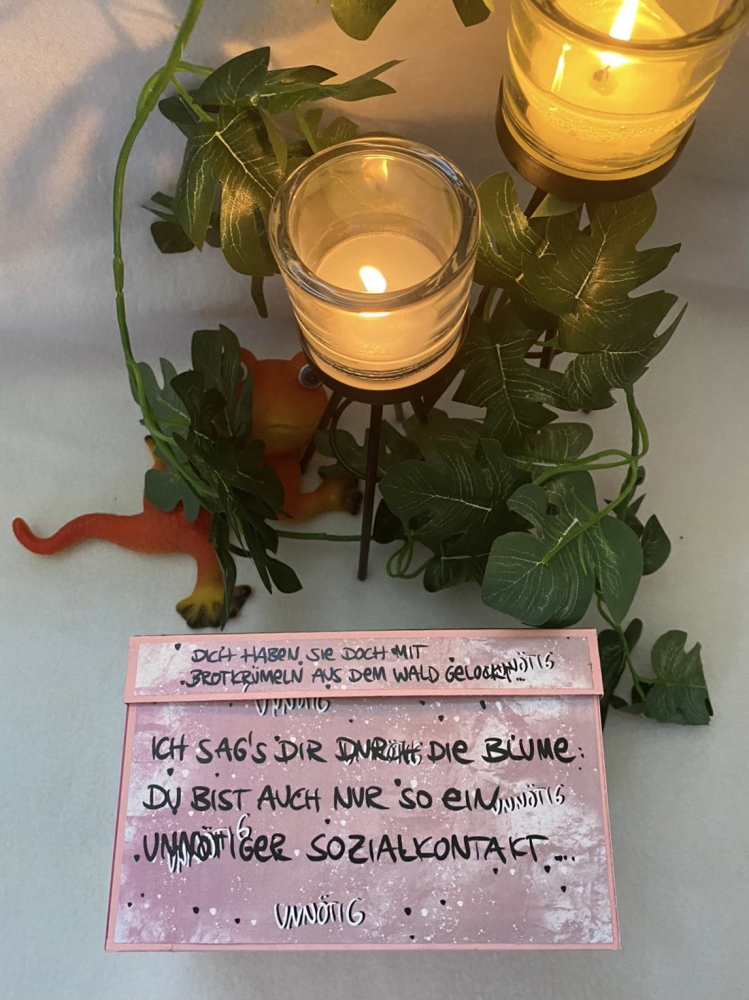 DICH HABEN SIE DOCH MIT
BROTKRÜMELN AUS DEM WALD GELOCKT... UNNÖTIG
UNNÖTIG
ICH SAG'S DIR DURCH DIE BLUME:
DU BIST AUCH NUR SO EIN UNNÖTIG
UNNÖTIGER SOZIALKONTAKT...
UNNÖTIG